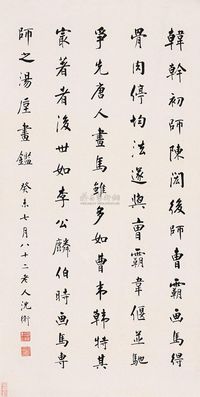 韓幹初師陳閎後師曹霸畫馬得
骨肉停均法遂與曹霸韋偃並馳
爭先唐人畫馬雖多如曹韋韓特其
最著者後世如李公麟伯時画馬專
師之湯垕畫鑑 癸未七月八十二老人沈衛